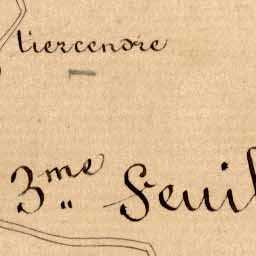 tiercendre
3.me Feuil